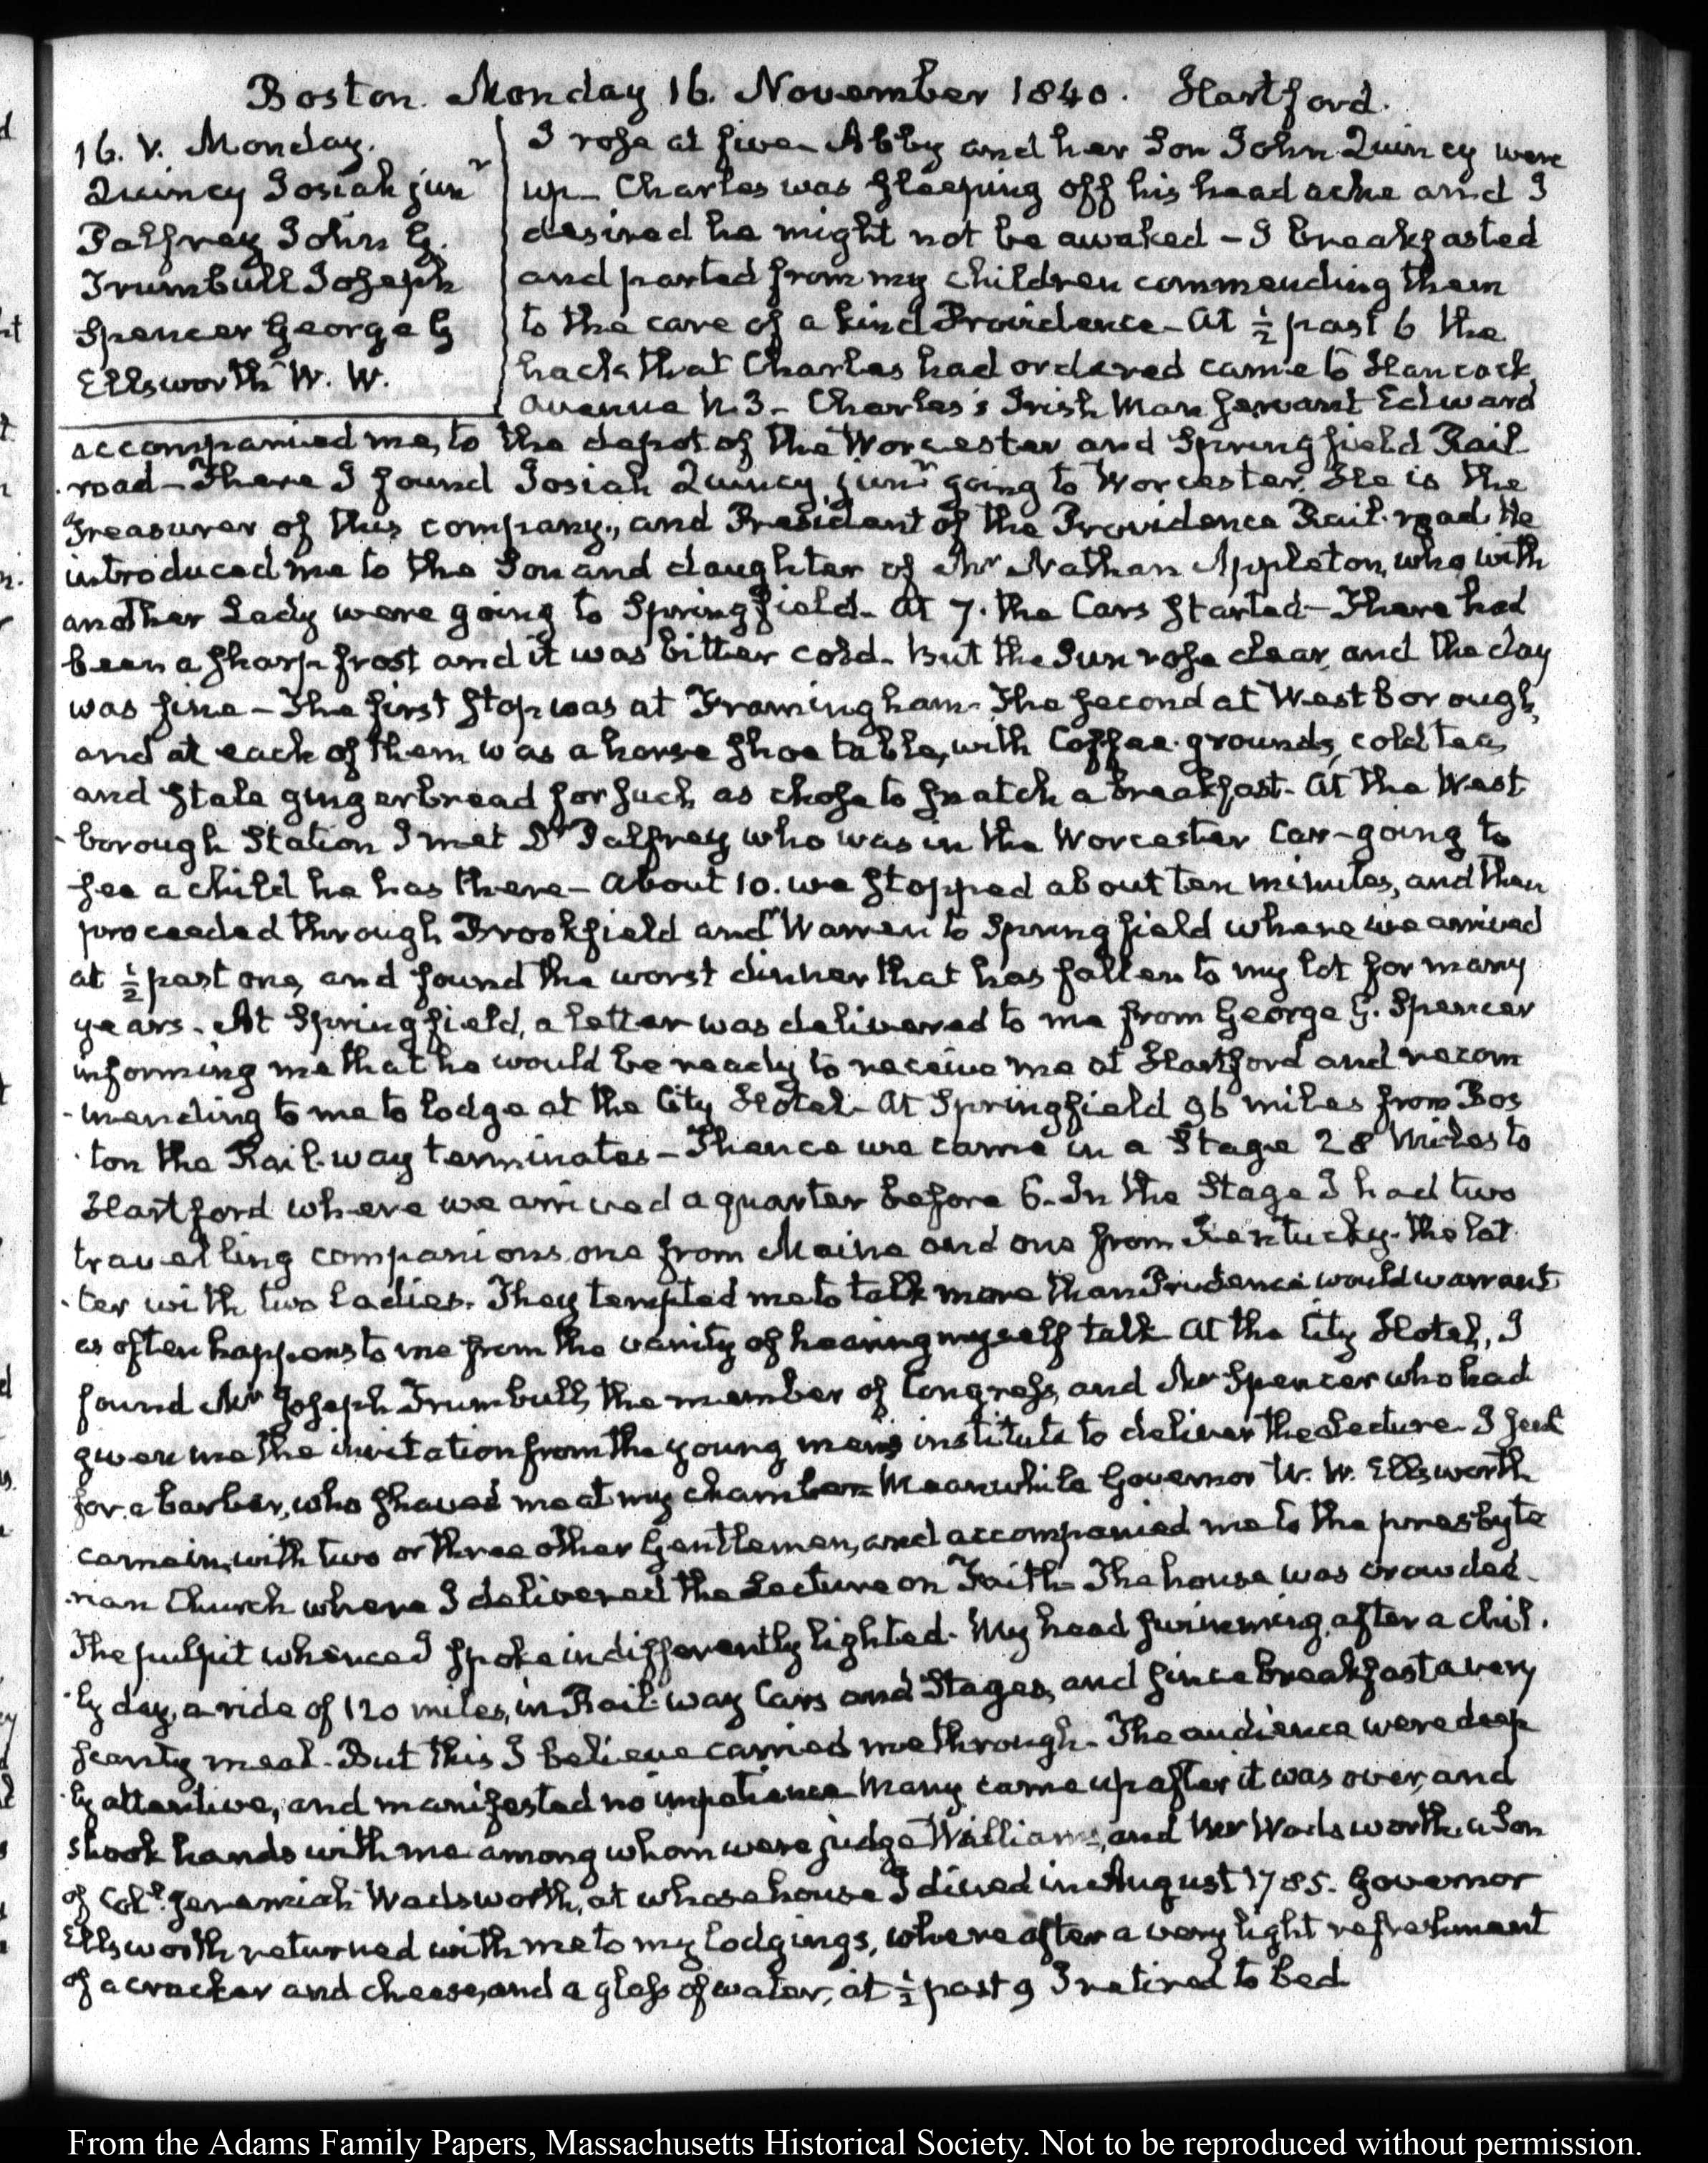 Boston. Monday 16. November 1840. Hartford.
16. V. Monday.
Quincy Josiah junr
Palfrey John G.
Trumbull Joseph
Spencer George G
Ellsworth W. W.
I rose at five Abby and her Son John Quincy were
up— Charles was sleeping off his head ache and I
desired he might not be awaked— I breakfasted
and parted from my children commending them
to the care of a kind Providence— At ½ past 6 the
hack that Charles had ordered came to Hancock
avenue N. 3— Charles's Irish Man servant Edward
accompanied me, to the depot of the Worcester and Springfield Rail
-road— There I found Josiah Quincy, junr going to Worcester. He is the
Treasurer of this company, and President of the Providence Rail-road. He
introduced me to the Son and daughter of Mr Nathan Appleton, who with
another Lady were going to Springfield— At 7. the Cars started— There had
been a sharp frost and it was bitter cold— But the Sun rose clear, and the day
was fine— The first stop was at Framingham— The second at Westborough,
and at each of them was a horse shoe table, with Coffee-grounds, cold tea,
and stale gingerbread for such as chose to snatch a breakfast— At the West
-borough Station I met Dr Palfrey who was in the Worcester Car— going to
see a child he has there— About 10. we stopped about ten minutes, and then
proceeded through Brookfield and Warren to Springfield where we arrived
at ½ past one, and found the worst dinner that has fallen to my lot for many
years— At Springfield, a letter was delivered to me from George G. Spencer
informing me that he would be ready to receive me at Hartford and recom
-mending to me to lodge at the City Hotel— At Springfield 96 miles from Bos
-ton the Rail-way terminates— Thence we came in a Stage 28 Miles to
Hartford where we arrived a quarter before 6— In the Stage I had two
travelling companions, one from Maine and one from Kentucky— the lat
-ter with two Ladies. They tempted me to talk more than Prudence would warrant
as often happens to me from the vanity of hearing myself talk— At the City Hotel, I
found Mr Joseph Trumbull, the member of Congress, and Mr Spencer who had
given me the invitation from the young men's institute to deliver the Lecture— I sent
for a barber, who shaved me at my chamber— Meanwhile Governor W. W. Ellsworth
came in, with two or three other Gentlemen, and accompanied me to the presbyte
-rian Church where I delivered the Lecture on Faith— The house was crowded—
The pulpit whence I spoke indifferently lighted— My head swimming, after a chil-
-ly day, a ride of 120 miles, in Rail-way Cars and Stages, and since breakfast a very
scanty meal— But this I believe carried me through— The audience were deep
-ly attentive, and manifested no impatience— Many came up after it was over, and
shook hands with me among whom were judge Williams, and Mr Wadsworth, a Son
of Coll. Jeremiah Wadsworth, at whose house I dined in August 1785. Governor
Ellsworth returned with me to my lodgings, where after a very light refreshment
of a cracker and cheese, and a glass of water, at ½ past 9 I retired to bed
From the Adams Family Papers, Massachusetts Historical Society. Not to be reproduced without permission.